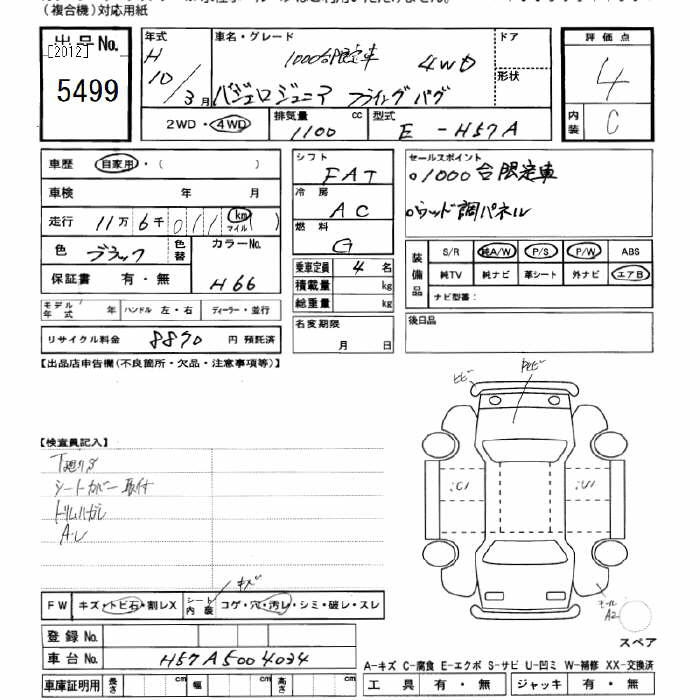 (複合機)対応用紙
出品No.
[2012]
5499
年式
H
10/3月
車名・グレード
1000台限定車 4WD
パジェロジュニア フライングパグ
ドア
形状
2WD・4WD
排気量
1100 cc
型式
E-H57A
評価点
4
内装
C
車歴 自家用・( )
車検 年 月
走行 11万6千011 km マイル
色 ブラック 色替
カラーNo.
H66
保証書 有・無
モデル年式 年 ハンドル 左・右 ディーラー・並行
リサイクル料金 8870 円 預託済
シフト
FAT
冷房
AC
燃料
G
乗車定員 4 名
積載量 kg
総重量 kg
名変期限
月 日
セールスポイント
o1000台限定車
oウッド調パネル
装備品
S/R 純A/W P/S P/W ABS
純TV 純ナビ 革シート 外ナビ エアB
ナビ型番:
後日品
【出品店申告欄(不良箇所・欠品・注意事項等)】
【検査員記入】
シートカバー取付
トリムハガレ
FW キズ・トビ石・割レX
シート内装 コゲ・穴・汚レ・シミ・破レ・スレ
キズ
登録No.
車台No. H57A5004034
車庫証明用 長さ cm 幅 cm 高さ cm
ヒビ
U1
モール
A2
スペア
A-キズ C-腐食 E-エクボ S-サビ U-凹ミ W-補修 XX-交換済
工具 有・無 ジャッキ 有・無